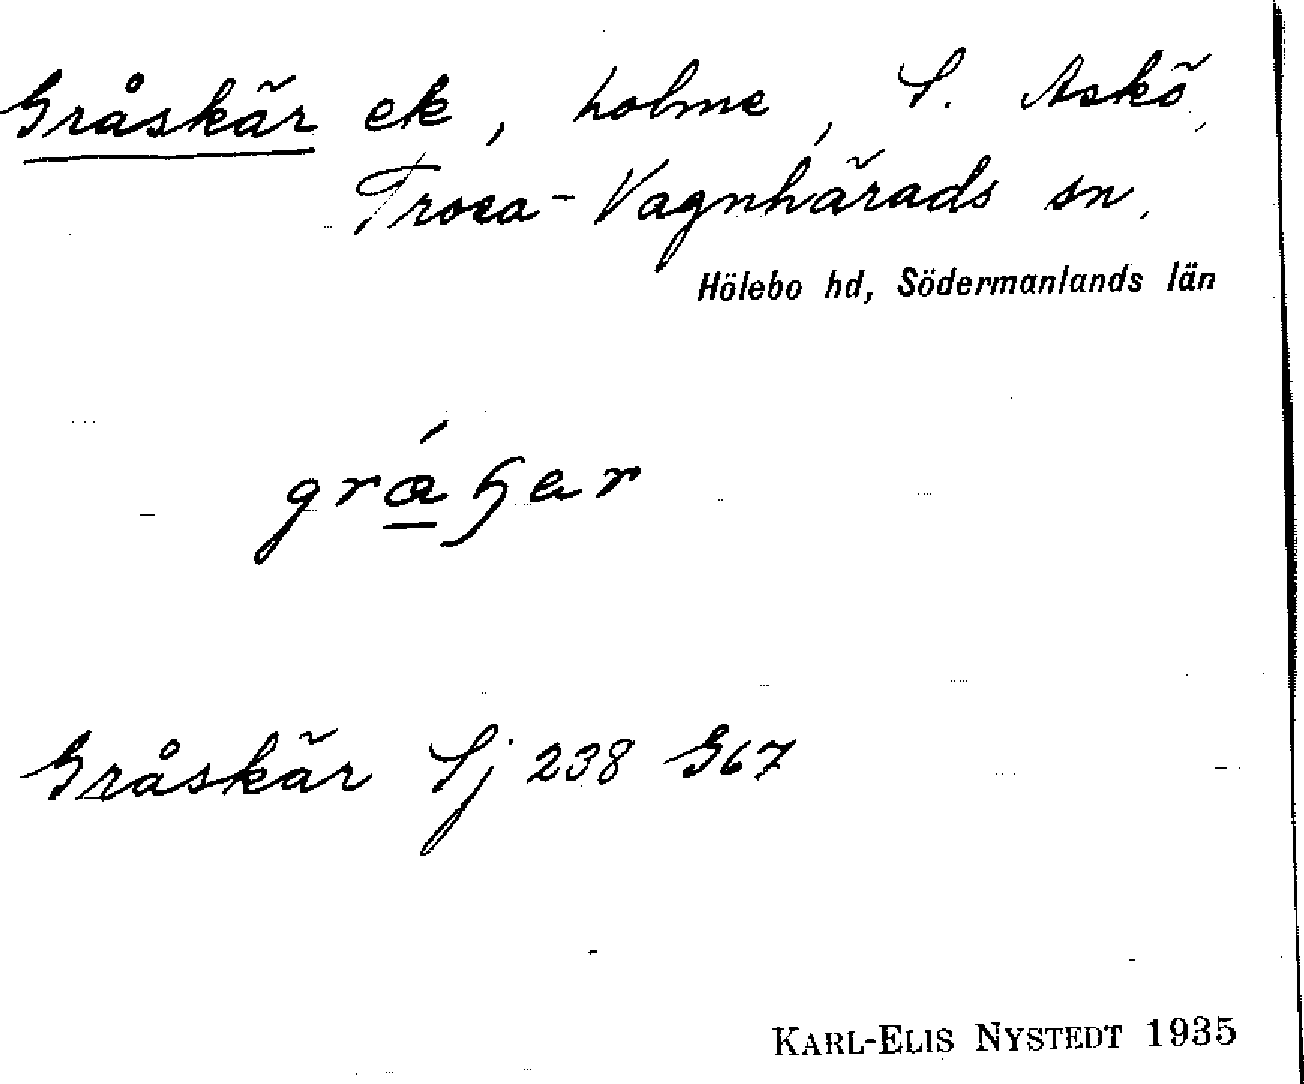 Gråskär ek, holme, S. Askö,
Trosa-Vagnhärads sn.
Hölebo hd, Södermanlands län
Gråskär Sj 238 G67
KARL-ELIS NYSTEDT 1935